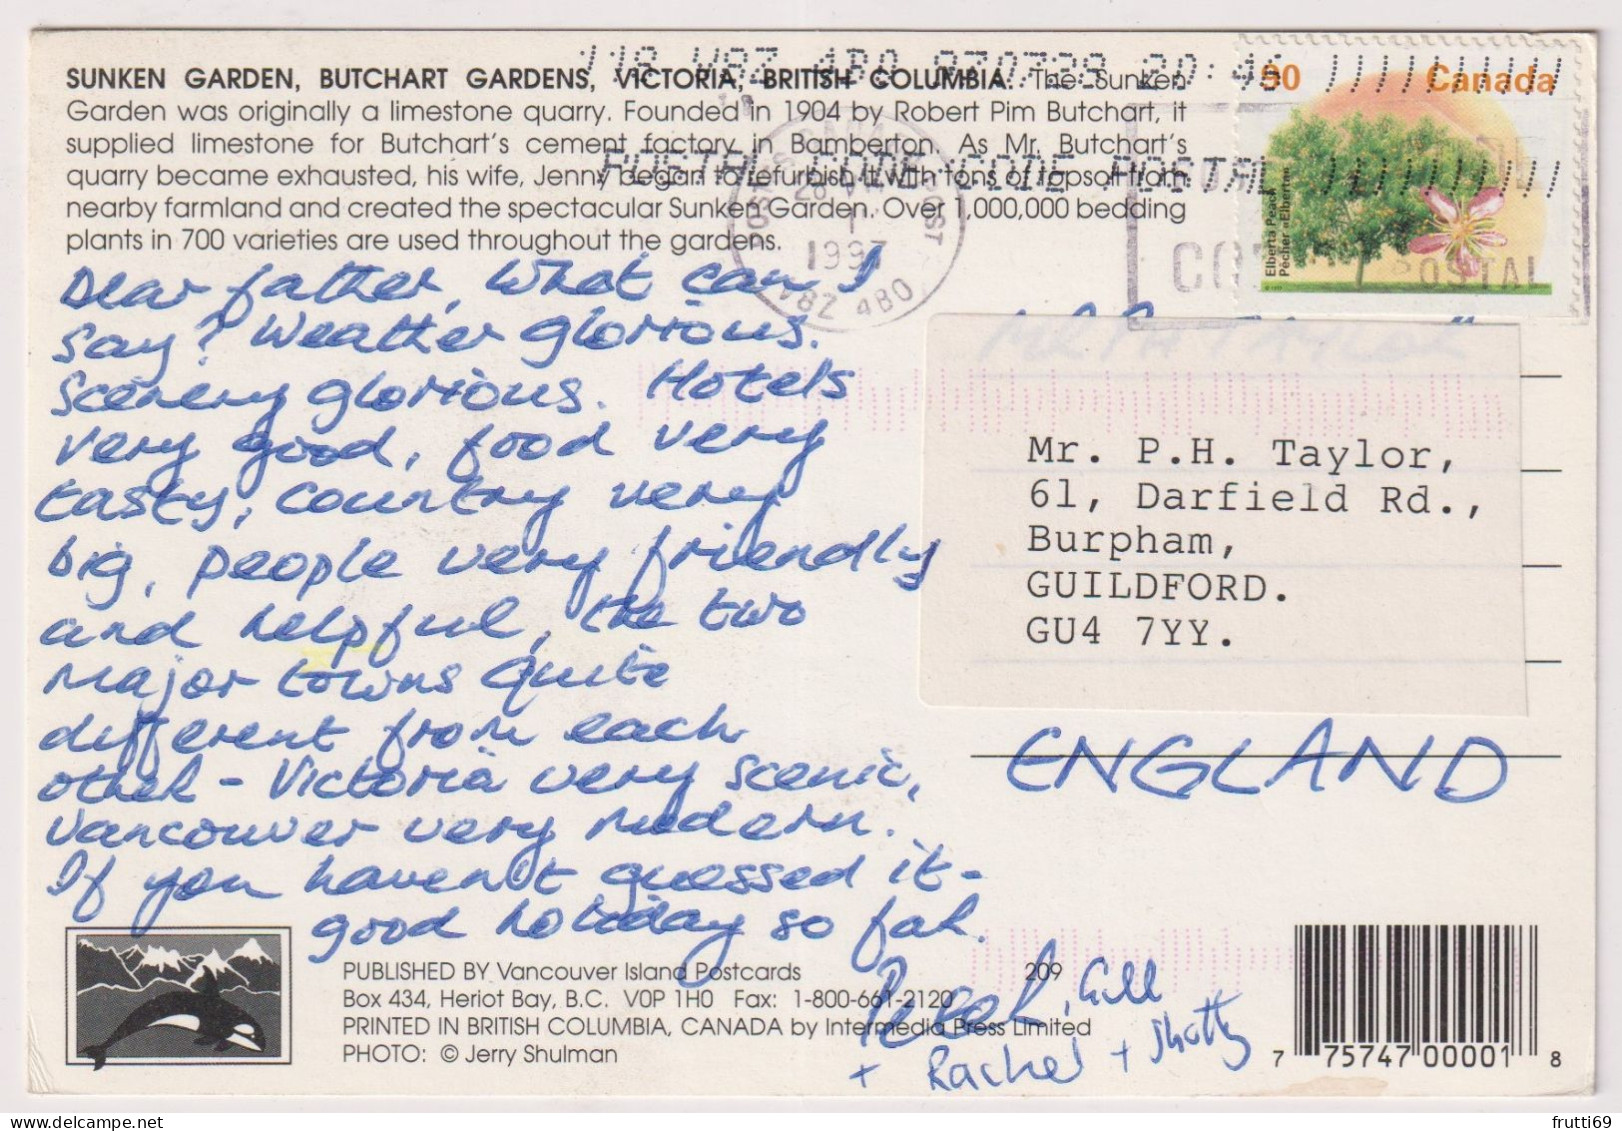 118 V8Z 4B0 970729 20:46
POSTAL CODE:CODE POSTAL
SUNKEN GARDEN, BUTCHART GARDENS, VICTORIA, BRITISH COLUMBIA. The Sunken
Garden was originally a limestone quarry. Founded in 1904 by Robert Pim Butchart, it
supplied limestone for Butchart's cement factory in Bamberton. As Mr. Butchart's
quarry became exhausted, his wife, Jenny began to refurbish it with tons of topsoil from
nearby farmland and created the spectacular Sunken Garden. Over 1,000,000 bedding
plants in 700 varieties are used throughout the gardens.
POSTES CANADA POST
1997
V8Z 4B0
90 Canada
Elberta Peach
Pêcher «Elberta»
POSTAL
Dear father, What can I
say? Weather glorious.
Scenery glorious. Hotels
very good, food very
tasty, country very
big, people very friendly
and helpful, the two
major towns quite
different from each
other - Victoria very scenic,
Vancouver very modern.
If you haven't guessed it -
good holiday so far.
Peter, Gill
+ Rachel +
Mr P H TAYLOR
Mr. P.H. Taylor,
61, Darfield Rd.,
Burpham,
GUILDFORD.
GU4 7YY.
ENGLAND
PUBLISHED BY Vancouver Island Postcards
209
Box 434, Heriot Bay, B.C. V0P 1H0 Fax: 1-800-661-2120
PRINTED IN BRITISH COLUMBIA, CANADA by Intermedia Press Limited
PHOTO: © Jerry Shulman
7 75747 00001 8
frutti69